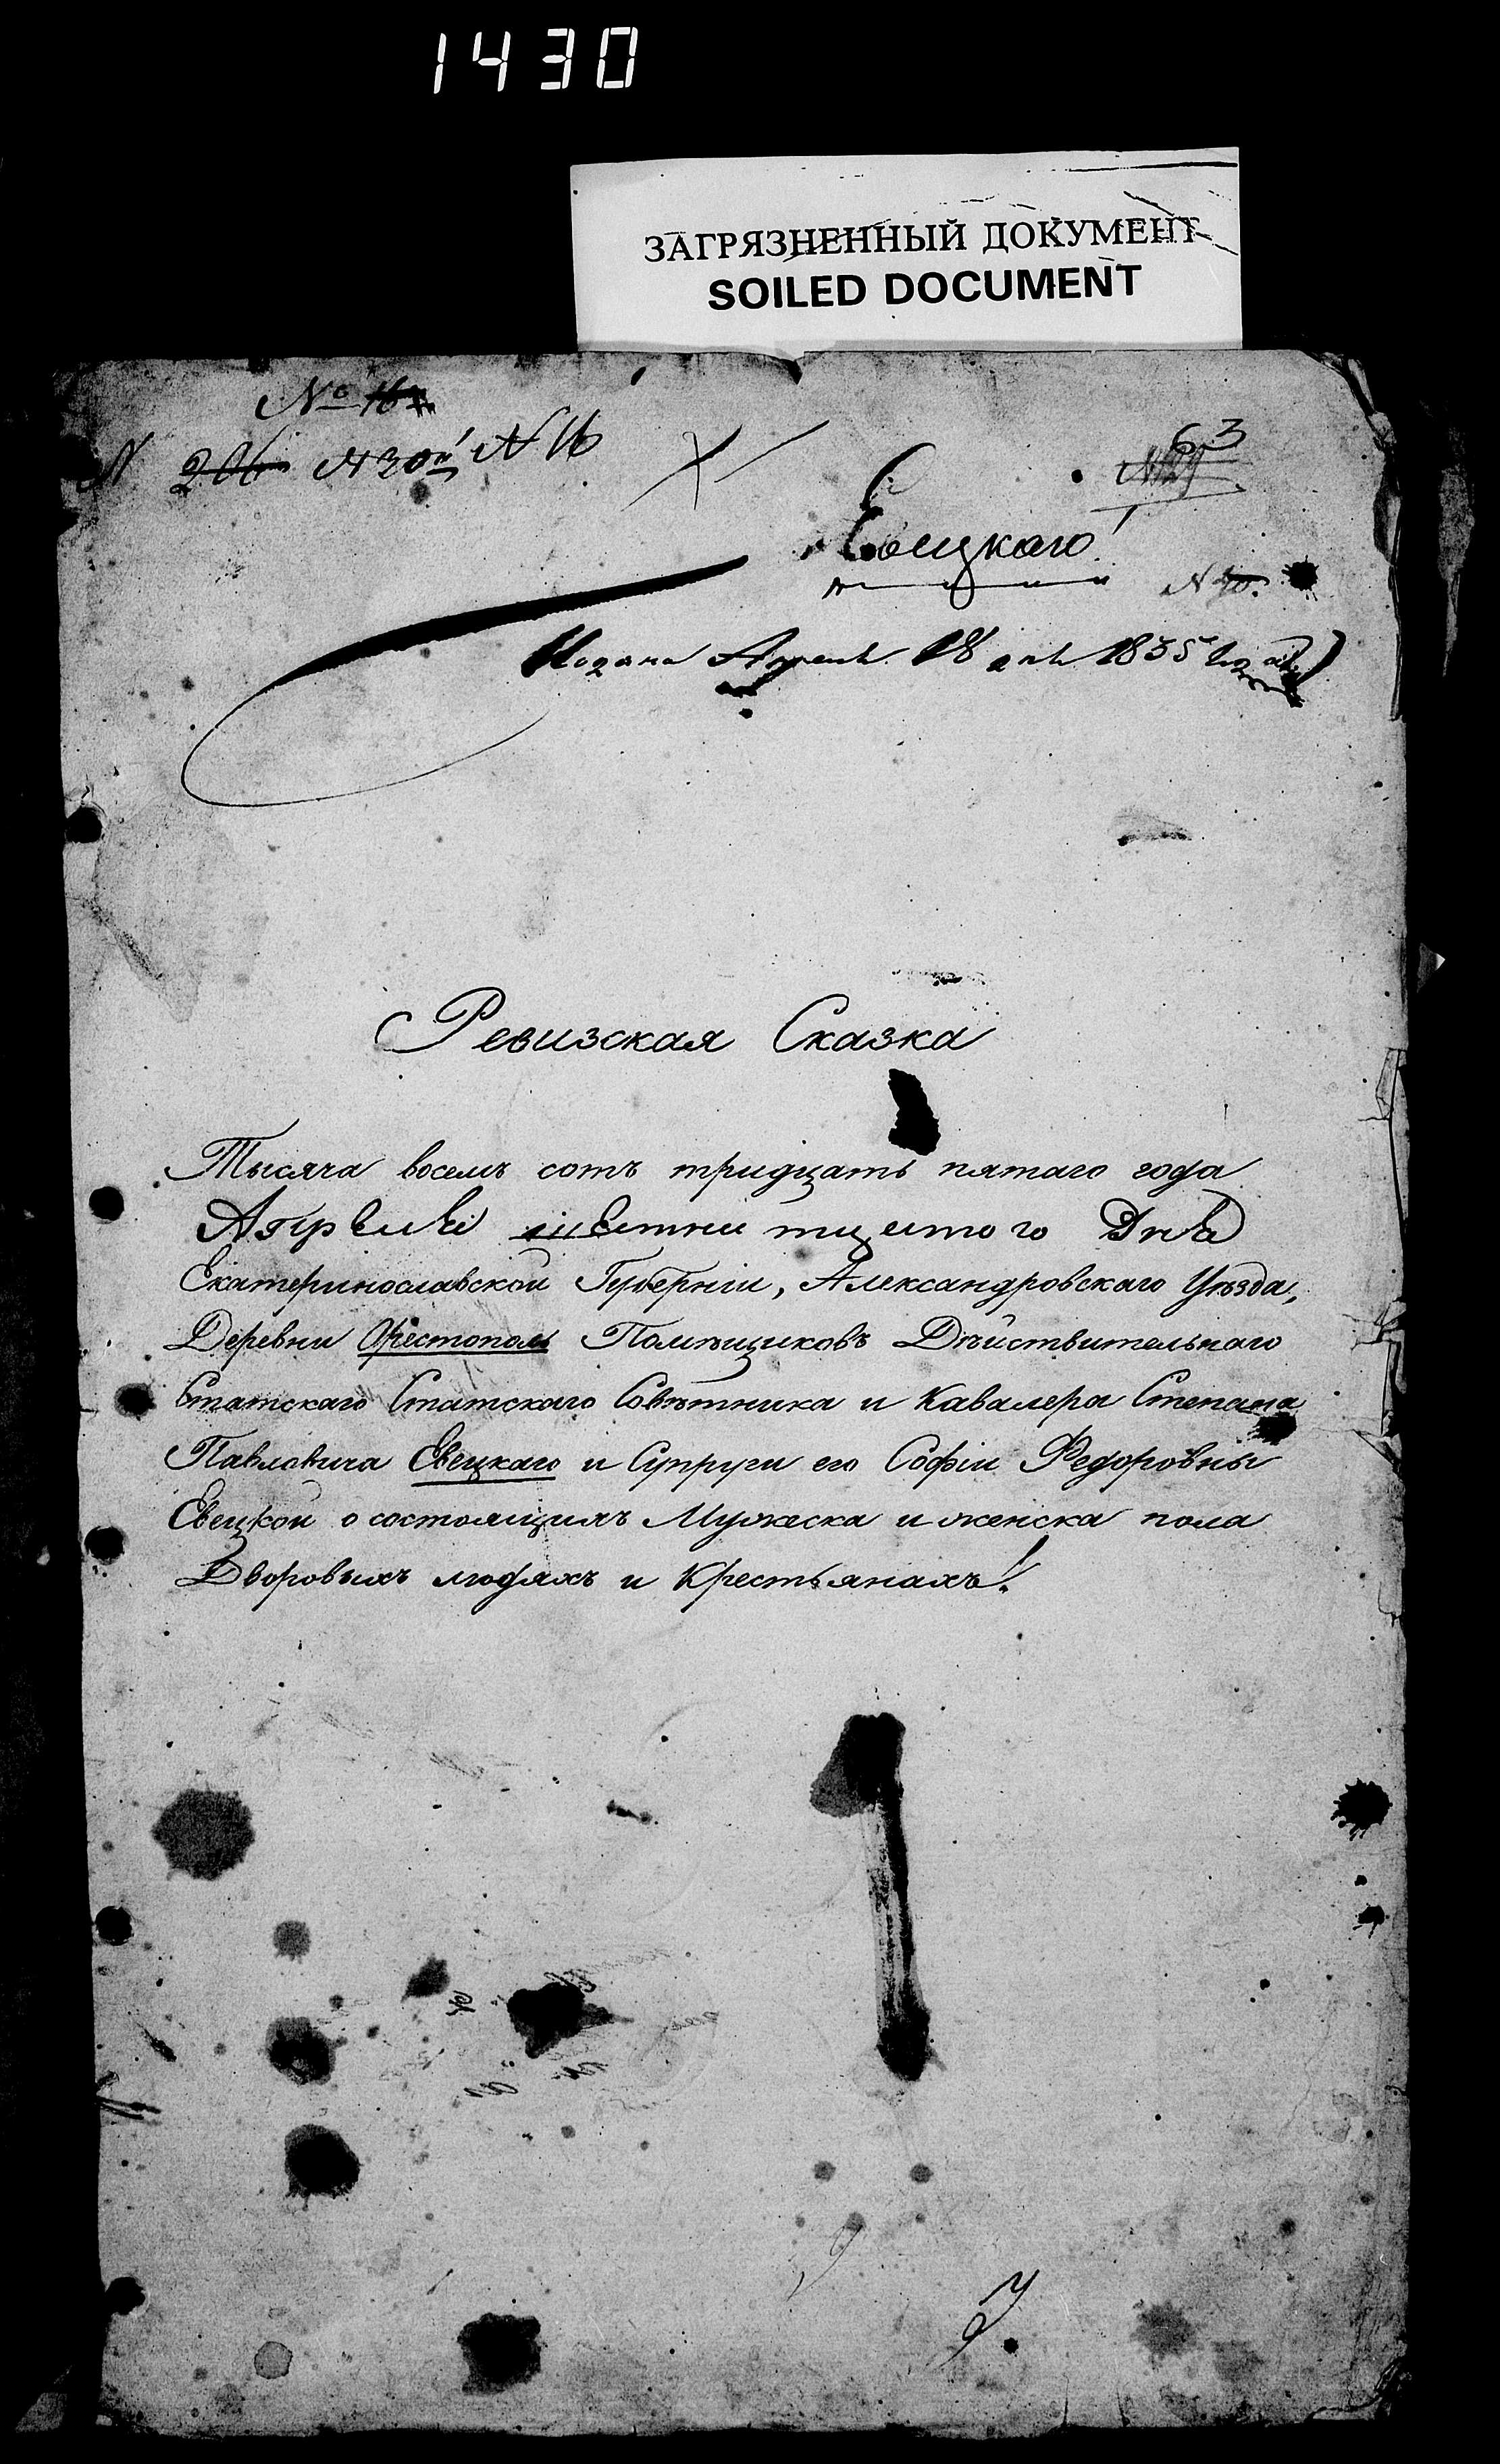 1430
ЗАГРЯЗНЕННЫЙ ДОКУМЕНТ
SOILED DOCUMENT
№ 16
N 206 N 16
63
Евецкаго
N 70.
Подана Апреля 18 дня 1835 года
Ревизская Сказка
Тысяча восемь сотъ тридцать пятаго года
Апреля Дня
Екатеринославской Губерніи, Александровскаго Уѣзда,
Деревни Орестополь Помѣщиковъ Дѣйствительнаго
Статскаго Статскаго Совѣтника и Кавалера Степана
Павловича Евецкаго и Супруги его Софіи Федоровны
Евецкой о состоящихъ Мужеска и женска пола
Дворовыхъ людяхъ и Крестьянахъ!